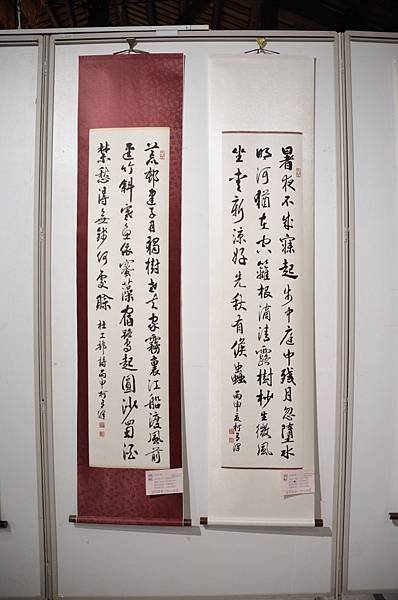 暑夜不成寐起步中庭中殘月忽墮水
明河猶在空籬根滴清露樹杪生微風
坐愛新涼好先秋有候蟲 丙申夏柯子
荒邨建子月獨樹老夫家霧裏江船渡風前
逕竹斜寒魚依密藻宿鷺起圓沙蜀酒
禁愁得無錢何處賒 杜工部詩丙申柯子